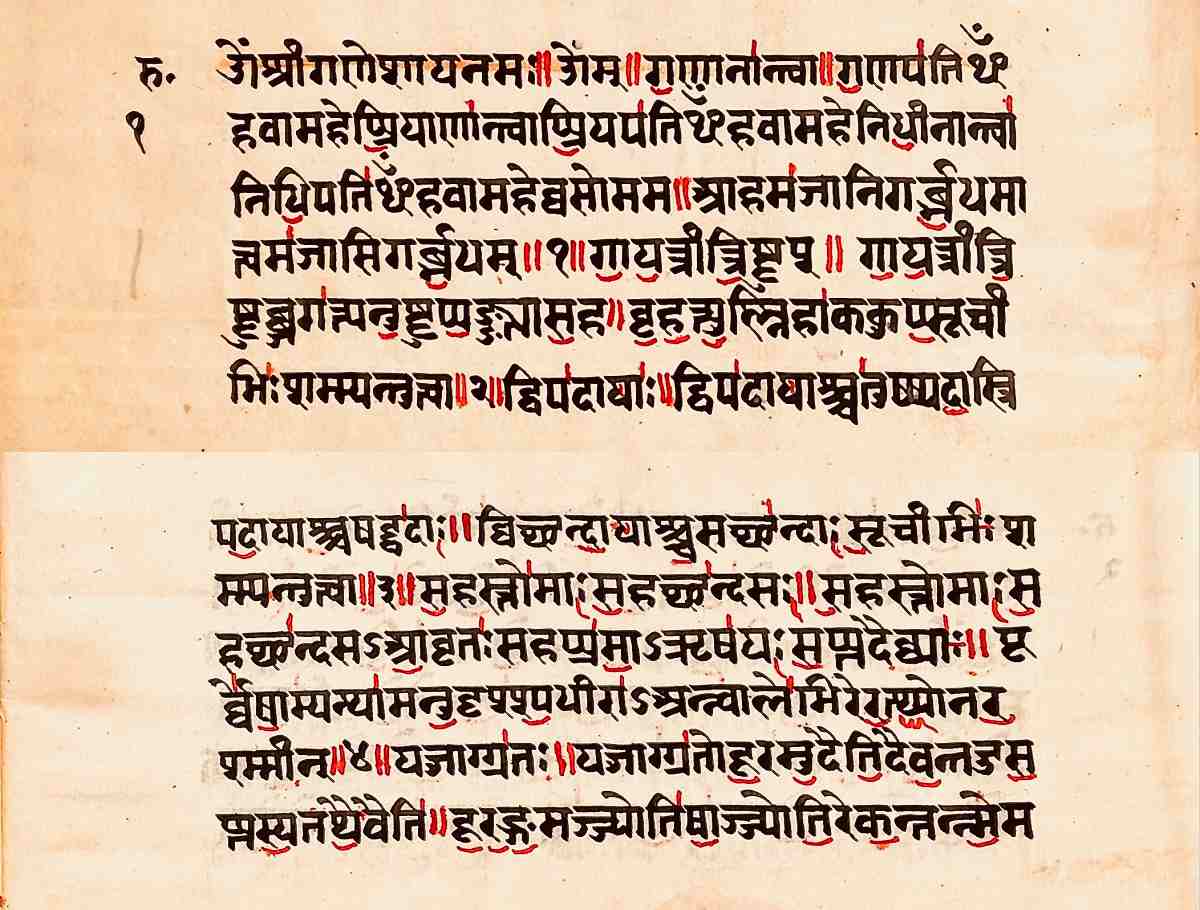 रु. ओँश्रीगणेशायनमः॥ ओँम्॥ गणानान्त्वा॥ गणपतिᳪ
१ हवामहेप्प्रियाणान्त्वाप्प्रियपतिᳪहवामहेनिधीनान्त्वा
निधिपतिᳪहवामहेव्वसोमम॥ आहमजानिगर्ब्भधमा
त्वमजासिगर्ब्भधम्॥१॥ गायत्रीत्रिष्टुप्॥ गायत्रीत्रि
ष्टुब्जगत्यनुष्टुप्पङ्क्त्यासह॥ बृहत्युष्णिहाककुप्पसूची
भिः शम्म्यन्तुत्वा॥२॥ द्विपदायाः॥ द्विपदायाश्चतुष्पदास्त्रि
पदायाश्चषट्पदाः॥ व्विच्छन्दायाश्चसच्छन्दाः सूचीभिः श
म्म्यन्तुत्वा॥३॥ सहस्तोमाः सहच्छन्दसः॥ सहस्तोमाः स
हच्छन्दसऽआवृतः सहप्प्रमाऽऋषयः सप्प्तदैव्व्याः॥ पू
र्व्वेषाम्पन्थामनुदृश्श्यधीराऽअन्न्वालेभिरेरत्थ्योनर
श्म्मीन्॥४॥ यज्जाग्ग्रतः॥ यज्जाग्ग्रतोदूरमुदैतिदैवन्तदुसु
प्प्तस्यतथैवैति॥ दूरङ्गमञ्ज्योतिषाञ्ज्योतिरेकन्न्तन्न्मेम